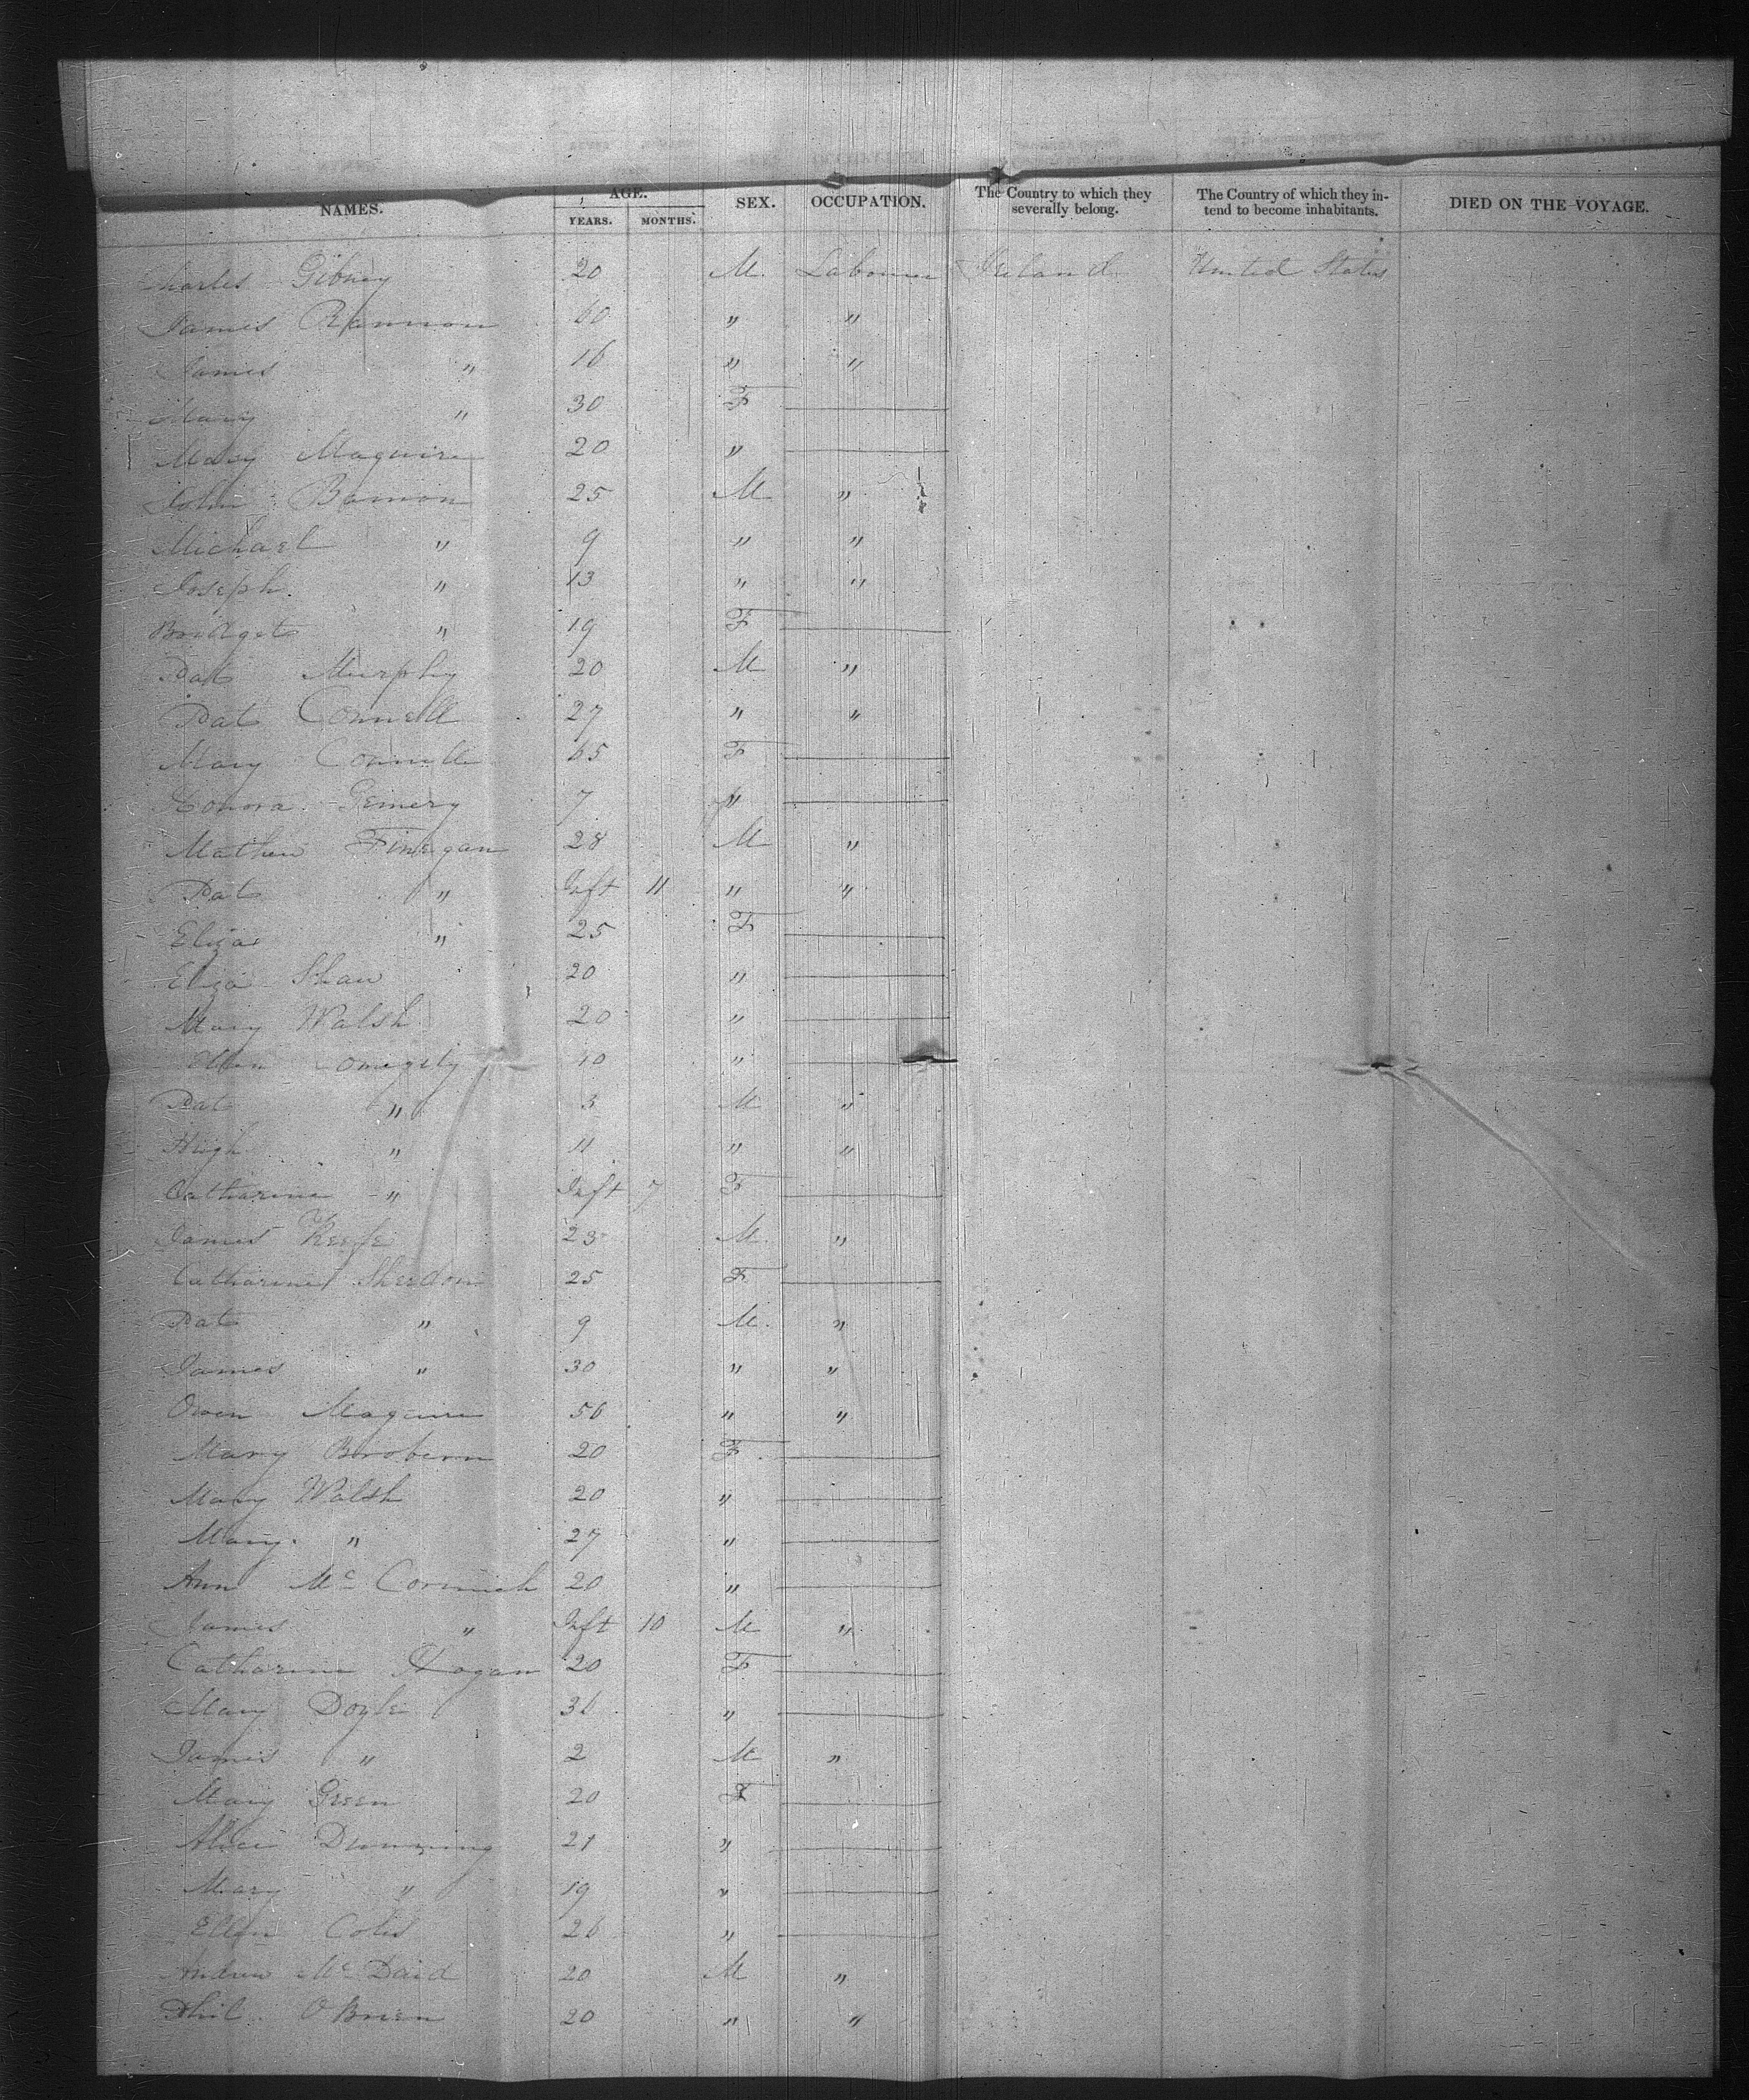 NAMES. AGE. YEARS. MONTHS. SEX. OCCUPATION. The Country to which they severally belong. The Country of which they intend to become inhabitants. DIED ON THE VOYAGE.
Charles Gibney 20 M. Labourer Ireland United States
James Rannon 60 " "
James " 16 " "
Mary " 30 F
Mary Maguire 20 "
John Bannon 25 M "
Michael " 9 " "
Joseph " 13 " "
Bridget " 19 F
Pat Murphy 20 M "
Pat Connell 27 " "
Mary Connell 65 F
Honora 7 "
Mathew Finegan 28 M "
Pat " Inft 11 " "
Eliza " 25 F
Eliza Shaw 20 "
Mary Walsh 20 "
10 "
Pat " 3 M "
Hugh " 11 " "
Catharine " Inft 7 F
James Keefe 23 M. "
Catharine Sherdon 25 F
Pat " 9 M. "
James " 30 " "
Owen Maguire 56 " "
Mary 20 F
Mary Walsh 20 "
Mary " 27 "
Ann Mc Cormick 20 "
James " Inft 10 M "
Catharine Hogan 20 F
Mary Doyle 36 "
James " 2 M "
Mary Green 20 F
Alice 21 "
Mary " 19 "
Ellen 26 "
Andrew Mc Daid 20 M "
Phil O'Brien 20 " "